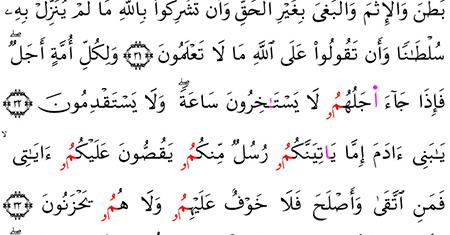 بَطَنَ وَالْإِثْمَ وَالْبَغْيَ بِغَيْرِ الْحَقِّ وَأَن تُشْرِكُواْ بِاللَّهِ مَا لَمْ يُنَزِّلْ بِهِۦ
سُلْطَٰنًا وَأَن تَقُولُواْ عَلَى اللَّهِ مَا لَا تَعْلَمُونَ ۝٣١ وَلِكُلِّ أُمَّةٍ أَجَلٌۖ
فَإِذَا جَآءَ اجَلُهُمُۥ لَا يَسْتَـاخِرُونَ سَاعَةًۖ وَلَا يَسْتَقْدِمُونَ ۝٣٢
يَٰبَنِىٓ ءَادَمَ إِمَّا يَاتِيَنَّكُمُۥ رُسُلٌ مِّنكُمُۥ يَقُصُّونَ عَلَيْكُمُۥ ءَايَٰتِى ۙ
فَمَنِ ٱتَّقَىٰ وَأَصْلَحَ فَلَا خَوْفٌ عَلَيْهِمُۥ وَلَا هُمُۥ يَحْزَنُونَ ۝٣٣